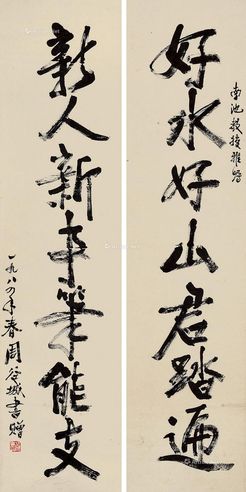 好水好山君踏遍
南池教授雅嘱
新人新事笔能支
一九八四年春周谷城书赠